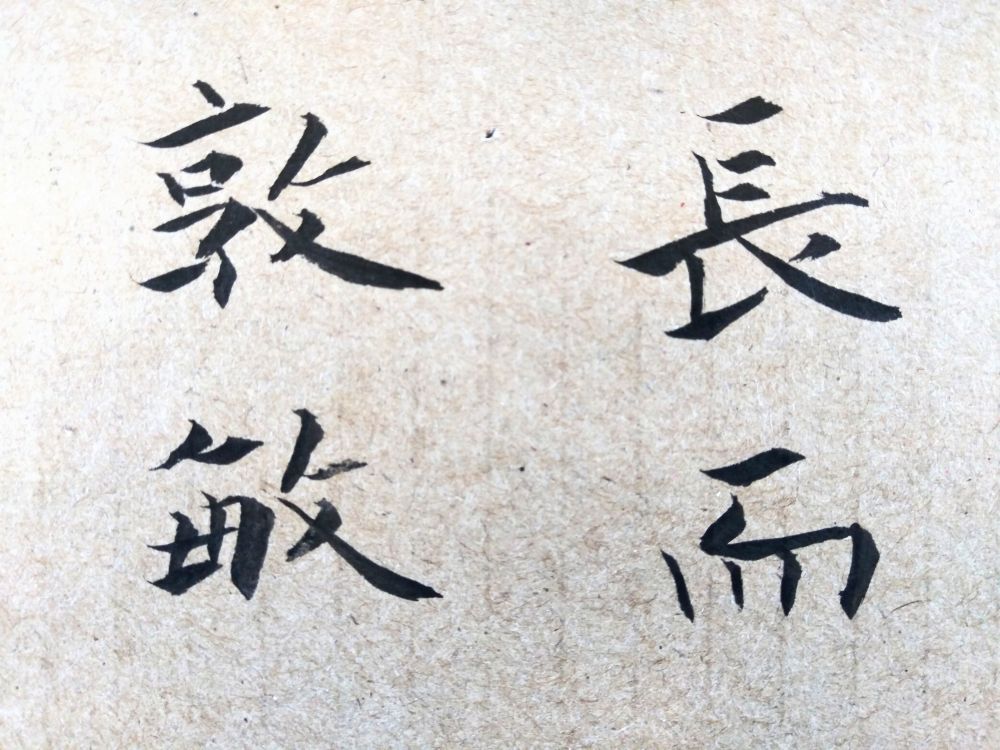 長而
敦敏